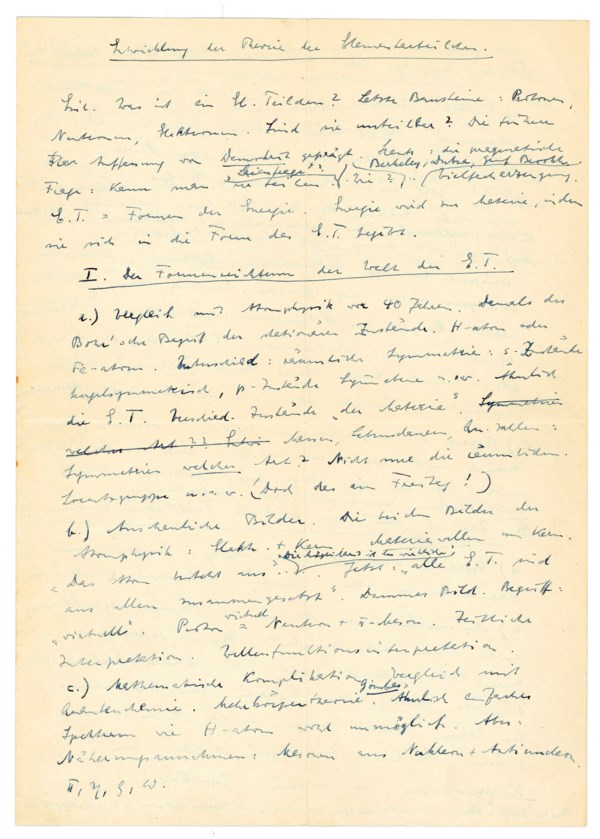 Entwicklung der Theorie der Elementarteilchen.
Einl. Was ist ein El. Teilchen? Letzte Bausteine: Protonen,
Neutronen, Elektronen. Sind sie unteilbar? Die frühere
Auffassung von Demokrit geprägt. Heute: die
"Laienfrage": Berkeley, Dubna, Genf
Frage: Kann man sie teilen. Wie? Vielfacherzeugung.
E.T. = Formen der Energie. Energie wird zur Materie, indem
sie sich in die Form des E.T. begibt.
I. Der Formenreichtum der Welt der E.T.
a.) Vergleich mit Atomphysik vor 40 Jahren. Damals der
Bohr'sche Begriff der stationären Zustände. H-atom oder
Fe-atom. Unterschied: räumliche Symmetrie: s-Zustände
kugelsymmetrisch, p-Zustände Symmetrie u.s.w. Ähnlich
die E.T. Verschied. Zustände "der Materie". Symmetrie
welcher Art?? Massen, Lebensdauern, Qu. zahlen:
Symmetrien welcher Art? Nicht nur die räumlichen.
Lorentzgruppe u.s.w. (Doch das am Freitag!)
b.) Anschauliche Bilder. Die beiden Bilder der
Atomphysik: Elektr. + Kern, Materiewellen um Kern.
"Das Atom besteht aus". Jetzt: "alle E.T. sind
aus allen zusammengesetzt". Dummes Bild. Begriff:
virtuell
"virtuell". Proton = Neutron + π-Meson. Zeitliche
Interpretation. Wellenfunktionsinterpretation.
c.) Mathematische Komplikation Vergleich mit
Quantenchemie. Mehrkörpertheorie. Ähnlich einfaches
Spektrum wie H-atom wohl unmöglich. Aber
Näherungsannahmen: Mesonen aus Nukleon + Antinukleon.
π, η, ρ, ω.